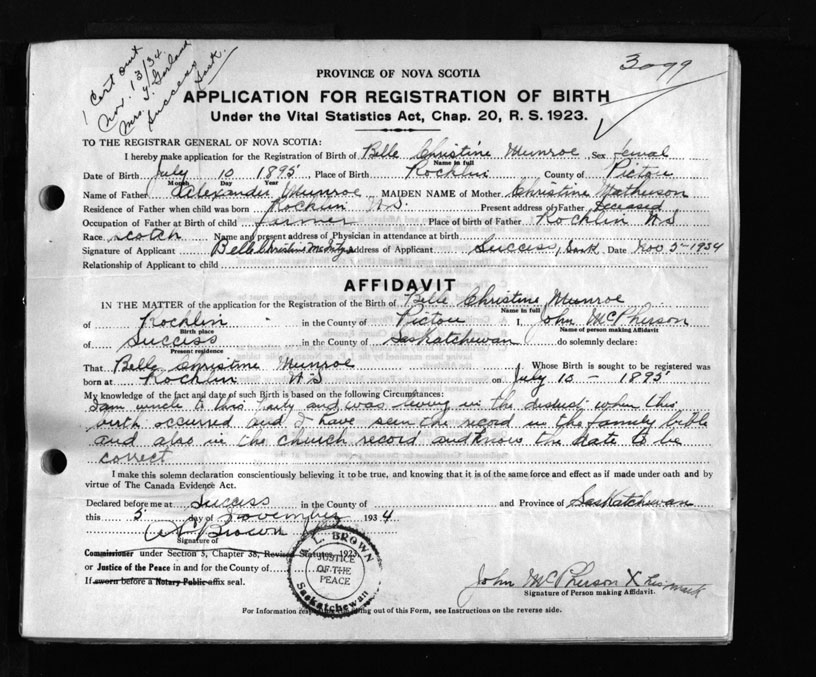 1 Cert out
Nov. 13/34.
Mrs. T. Garland
Success
Sask.
3099
PROVINCE OF NOVA SCOTIA
APPLICATION FOR REGISTRATION OF BIRTH
Under the Vital Statistics Act, Chap. 20, R. S. 1923.
TO THE REGISTRAR GENERAL OF NOVA SCOTIA:
I hereby make application for the Registration of Birth of Belle Christine Munroe Sex
Name in full
Date of Birth July 10 1895 Place of Birth Rocklin County of Pictou
Month Day Year
Name of Father Alexander Munroe MAIDEN NAME of Mother Christine Matheson
Residence of Father when child was born Rocklin N.S. Present address of Father Deceased
Occupation of Father at Birth of child farmer Place of birth of Father Rocklin N S
Race Scotch Name and present address of Physician in attendance at birth
Signature of Applicant Belle Christine Address of Applicant Success, Sask Date Nov 5 - 1934
Relationship of Applicant to child
AFFIDAVIT
IN THE MATTER of the application for the Registration of the Birth of Belle Christine Munroe
Name in full
of Rocklin in the County of Pictou I, John McPherson
Birth place Name of person making Affidavit
of Success in the County of Saskatchewan do solemnly declare:
Present residence
That Belle Christine Munroe Whose Birth is sought to be registered was
born at Rocklin N S on July 10 - 1895
My knowledge of the fact and date of such Birth is based on the following Circumstances:
I am uncle to this and was living in the district when this
birth occurred and I have seen the record in the family bible
and also in the church record and know the date to be
correct
I make this solemn declaration conscientiously believing it to be true, and knowing that it is of the same force and effect as if made under oath and by
virtue of The Canada Evidence Act.
Declared before me at Success in the County of and Province of Saskatchewan
this 5 day of November 1934
L Brown
Signature of
Commissioner under Section 5, Chapter 38, Revised Statutes, 1923
or Justice of the Peace in and for the County of
If sworn before a Notary Public affix seal.
L. BROWN
JUSTICE
OF THE
PEACE
Saskatchewan
John McPherson X his mark
Signature of Person making Affidavit.
For Information respecting filling out of this Form, see Instructions on the reverse side.